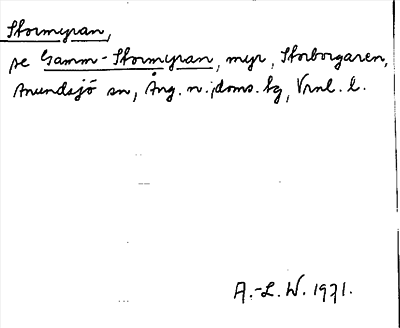 Stormyran,
se Gamm-Stormyran, myr, Storborgaren,
Anundsjö sn, Ång. n. doms. tg, Vrnl. l.
A.-L. W. 1971.